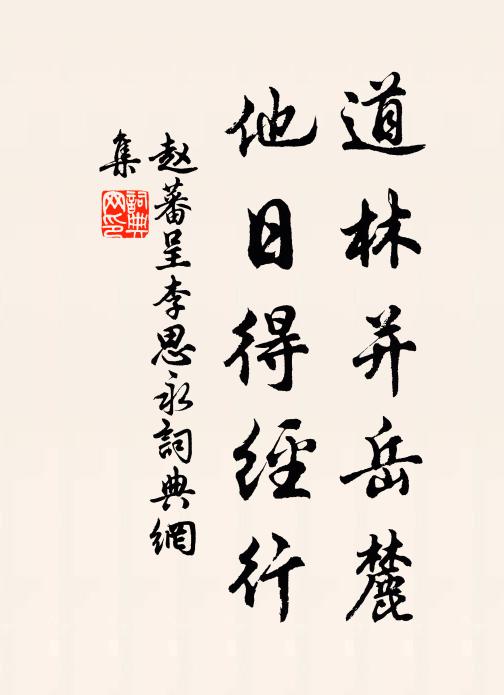 道林并岳麓
他日得經行
赵蕃呈李思永詞典網
集
詞典
网印